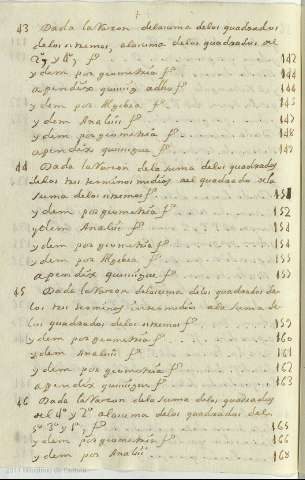 43 Dada la Razon dela suma delos quadrados
delos estremos, ala suma delos quadrados del
2º y 4º, fº 142
ydem por geometria fº 144
apendix quinziq. adho fº 144
ydem por Algebra fº 145
ydem Analisi fº 147
ydem por geometria fº 148
apendix quinziq. fº 149
44 Dada la Razon dela suma delos quadrados
delos tres terminos medios al quadrado dela
suma delos estremos fº 151
ydem por geometria fº 152
ydem Analisi fº 154
ydem por geometria fº 154
ydem por Algebra fº 155
apendix quinzique fº 155
45 Dada la Razon dela suma delos quadrados de
los tres terminos intermedios ala suma de
los quadrados delos estremos fº 159
ydem por geometria fº 160
ydem Analisi fº 161
ydem por geometria fº 162
apendix quinziq. fº 163
46 Dada la Razon dela suma delos quadrados
del 4º y 2º ala suma delos quadrados del
5º 3º y 1º, fº 165
ydem por geometria fº 166
ydem por Anali 168